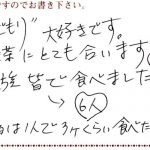 ですのでお書き下さい。
どもり) 大好きです。
葉にとても合います(
族皆で食べました
6人
るは1人で3ヶくらい食べた